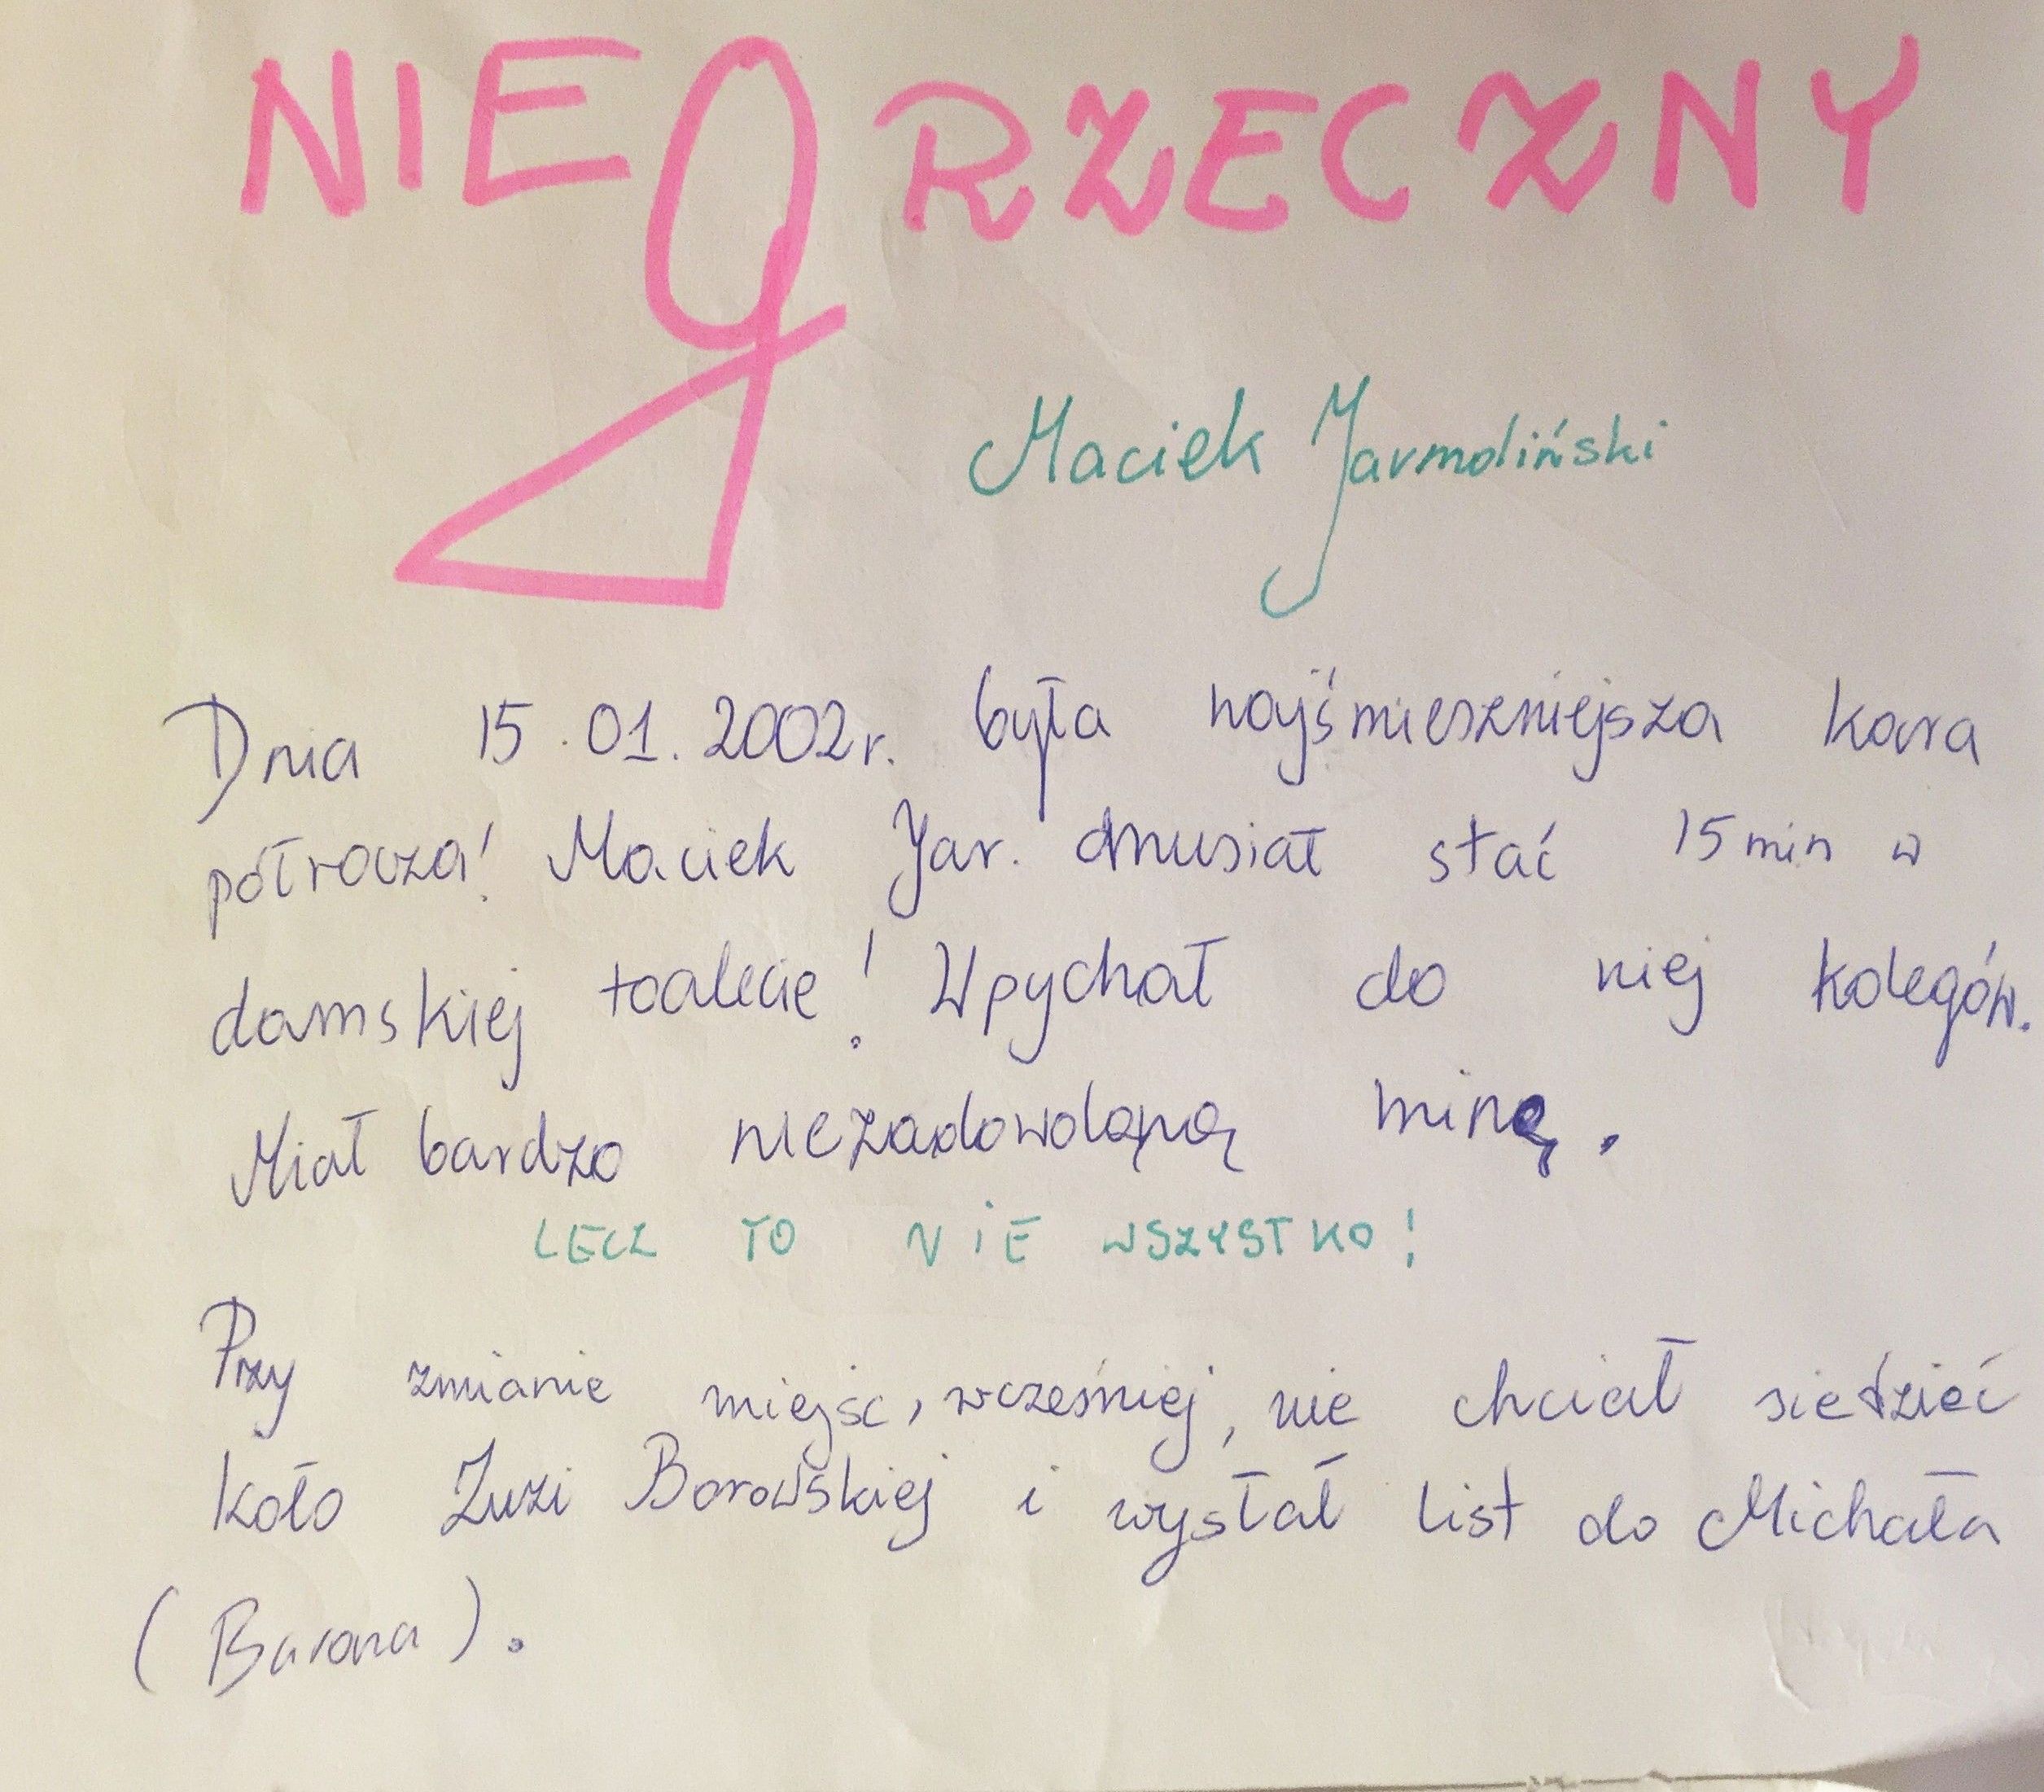 NIEGRZECZNY
Maciek Jarmoliński
Dnia 15.01.2002r. była najśmieszniejsza kara
półrocza! Maciek Jar. musiał stać 15 min w
damskiej toalecie! Wpychał do niej kolegów.
Miał bardzo niezadowoloną minę.
LECZ TO NIE WSZYSTKO!
Przy zmianie miejsc, wcześniej, nie chciał siedzieć
koło Zuzi Borowskiej i wysłał list do Michała
(Barona).